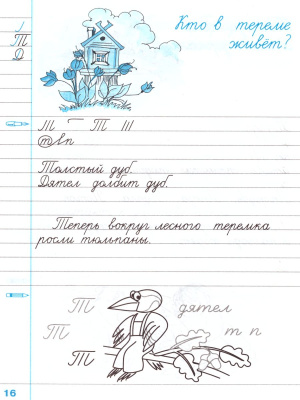 Кто в тереме
живёт?
Т
Д
Т Т
т в п
Толстый дуб.
Дятел долбит дуб.
Теперь вокруг лесного теремка
росли тюльпаны.
Т дятел
Т т п
Т
16